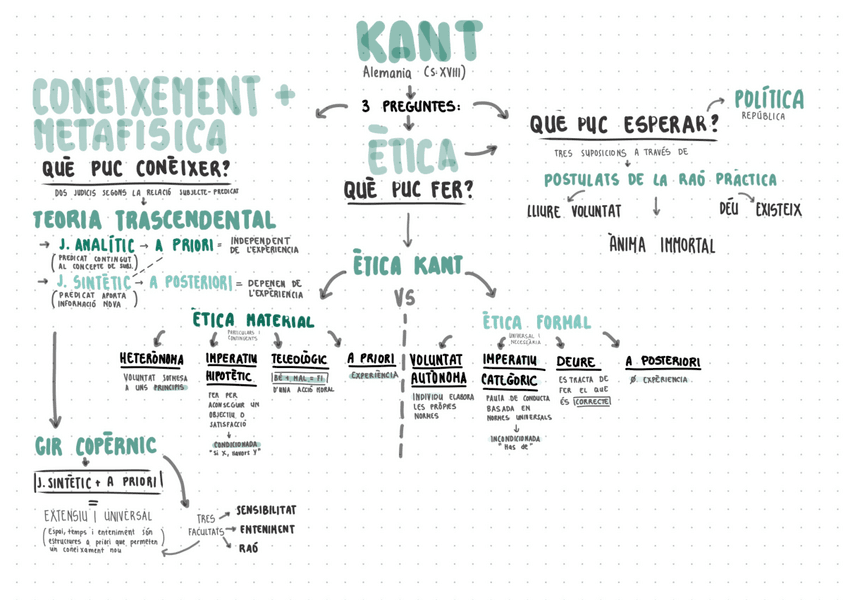 KANT
Alemania (S.XVIII)
3 PREGUNTES:
CONEIXEMENT +
METAFISICA
QUÈ PUC CONÈIXER?
DOS JUDICIS SEGONS LA RELACIÓ SUBJECTE-PREDICAT
TEORIA TRASCENDENTAL
→ J. ANALÍTIC → A PRIORI = INDEPENDENT
DE L'EXPERIÈNCIA
(PREDICAT CONTINGUT
AL CONCEPTE DE SUBJ.)
→ J. SINTÈTIC → A POSTERIORI = DEPENEN DE
L'EXPERIÈNCIA
(PREDICAT APORTA
INFORMACIÓ NOVA)
GIR COPÈRNIC
J. SINTÈTIC + A PRIORI
=
EXTENSIU I UNIVERSAL
(Espai, temps i enteniment són
estructures a priori que permeten
un coneixament nou)
TRES
FACULTATS
SENSIBILITAT
ENTENIMENT
RAÓ
ÈTICA
QUÈ PUC FER?
ÈTICA KANT
VS
ÈTICA MATERIAL
PARTICULARS I
CONTINGENTS
HETERÒNOMA
VOLUNTAT SOTMESA
A UNS PRINCIPIS
IMPERATIU
HIPOTÈTIC
FER PER
ACONSEGUIR UN
OBJECTIU O
SATISFACCIÓ
CONDICIONADA
"Si X, llavors Y"
TELEOLÒGIC
BÉ + MAL = FI
D'UNA ACCIÓ MORAL
A PRIORI
EXPERIÈNCIA
ÈTICA FORMAL
UNIVERSAL I
NECESSÀRIA
VOLUNTAT
AUTÒNOMA
INDIVIDU ELABORA
LES PRÒPIES
NORMES
IMPERATIU
CATEGÒRIC
PAUTA DE CONDUCTA
BASADA EN
NORMES UNIVERSALS
INCONDICIONADA
"Has de"
DEURE
ES TRACTA DE
FER EL QUE
ÉS CORRECTE
A POSTERIORI
Ø EXPÈRIENCIA
QUÈ PUC ESPERAR?
POLÍTICA
REPÚBLICA
TRES SUPOSICIONS A TRAVÉS DE
POSTULATS DE LA RAÓ PRÀCTICA
LLIURE VOLUNTAT
ÀNIMA IMMORTAL
DÉU EXISTEIX